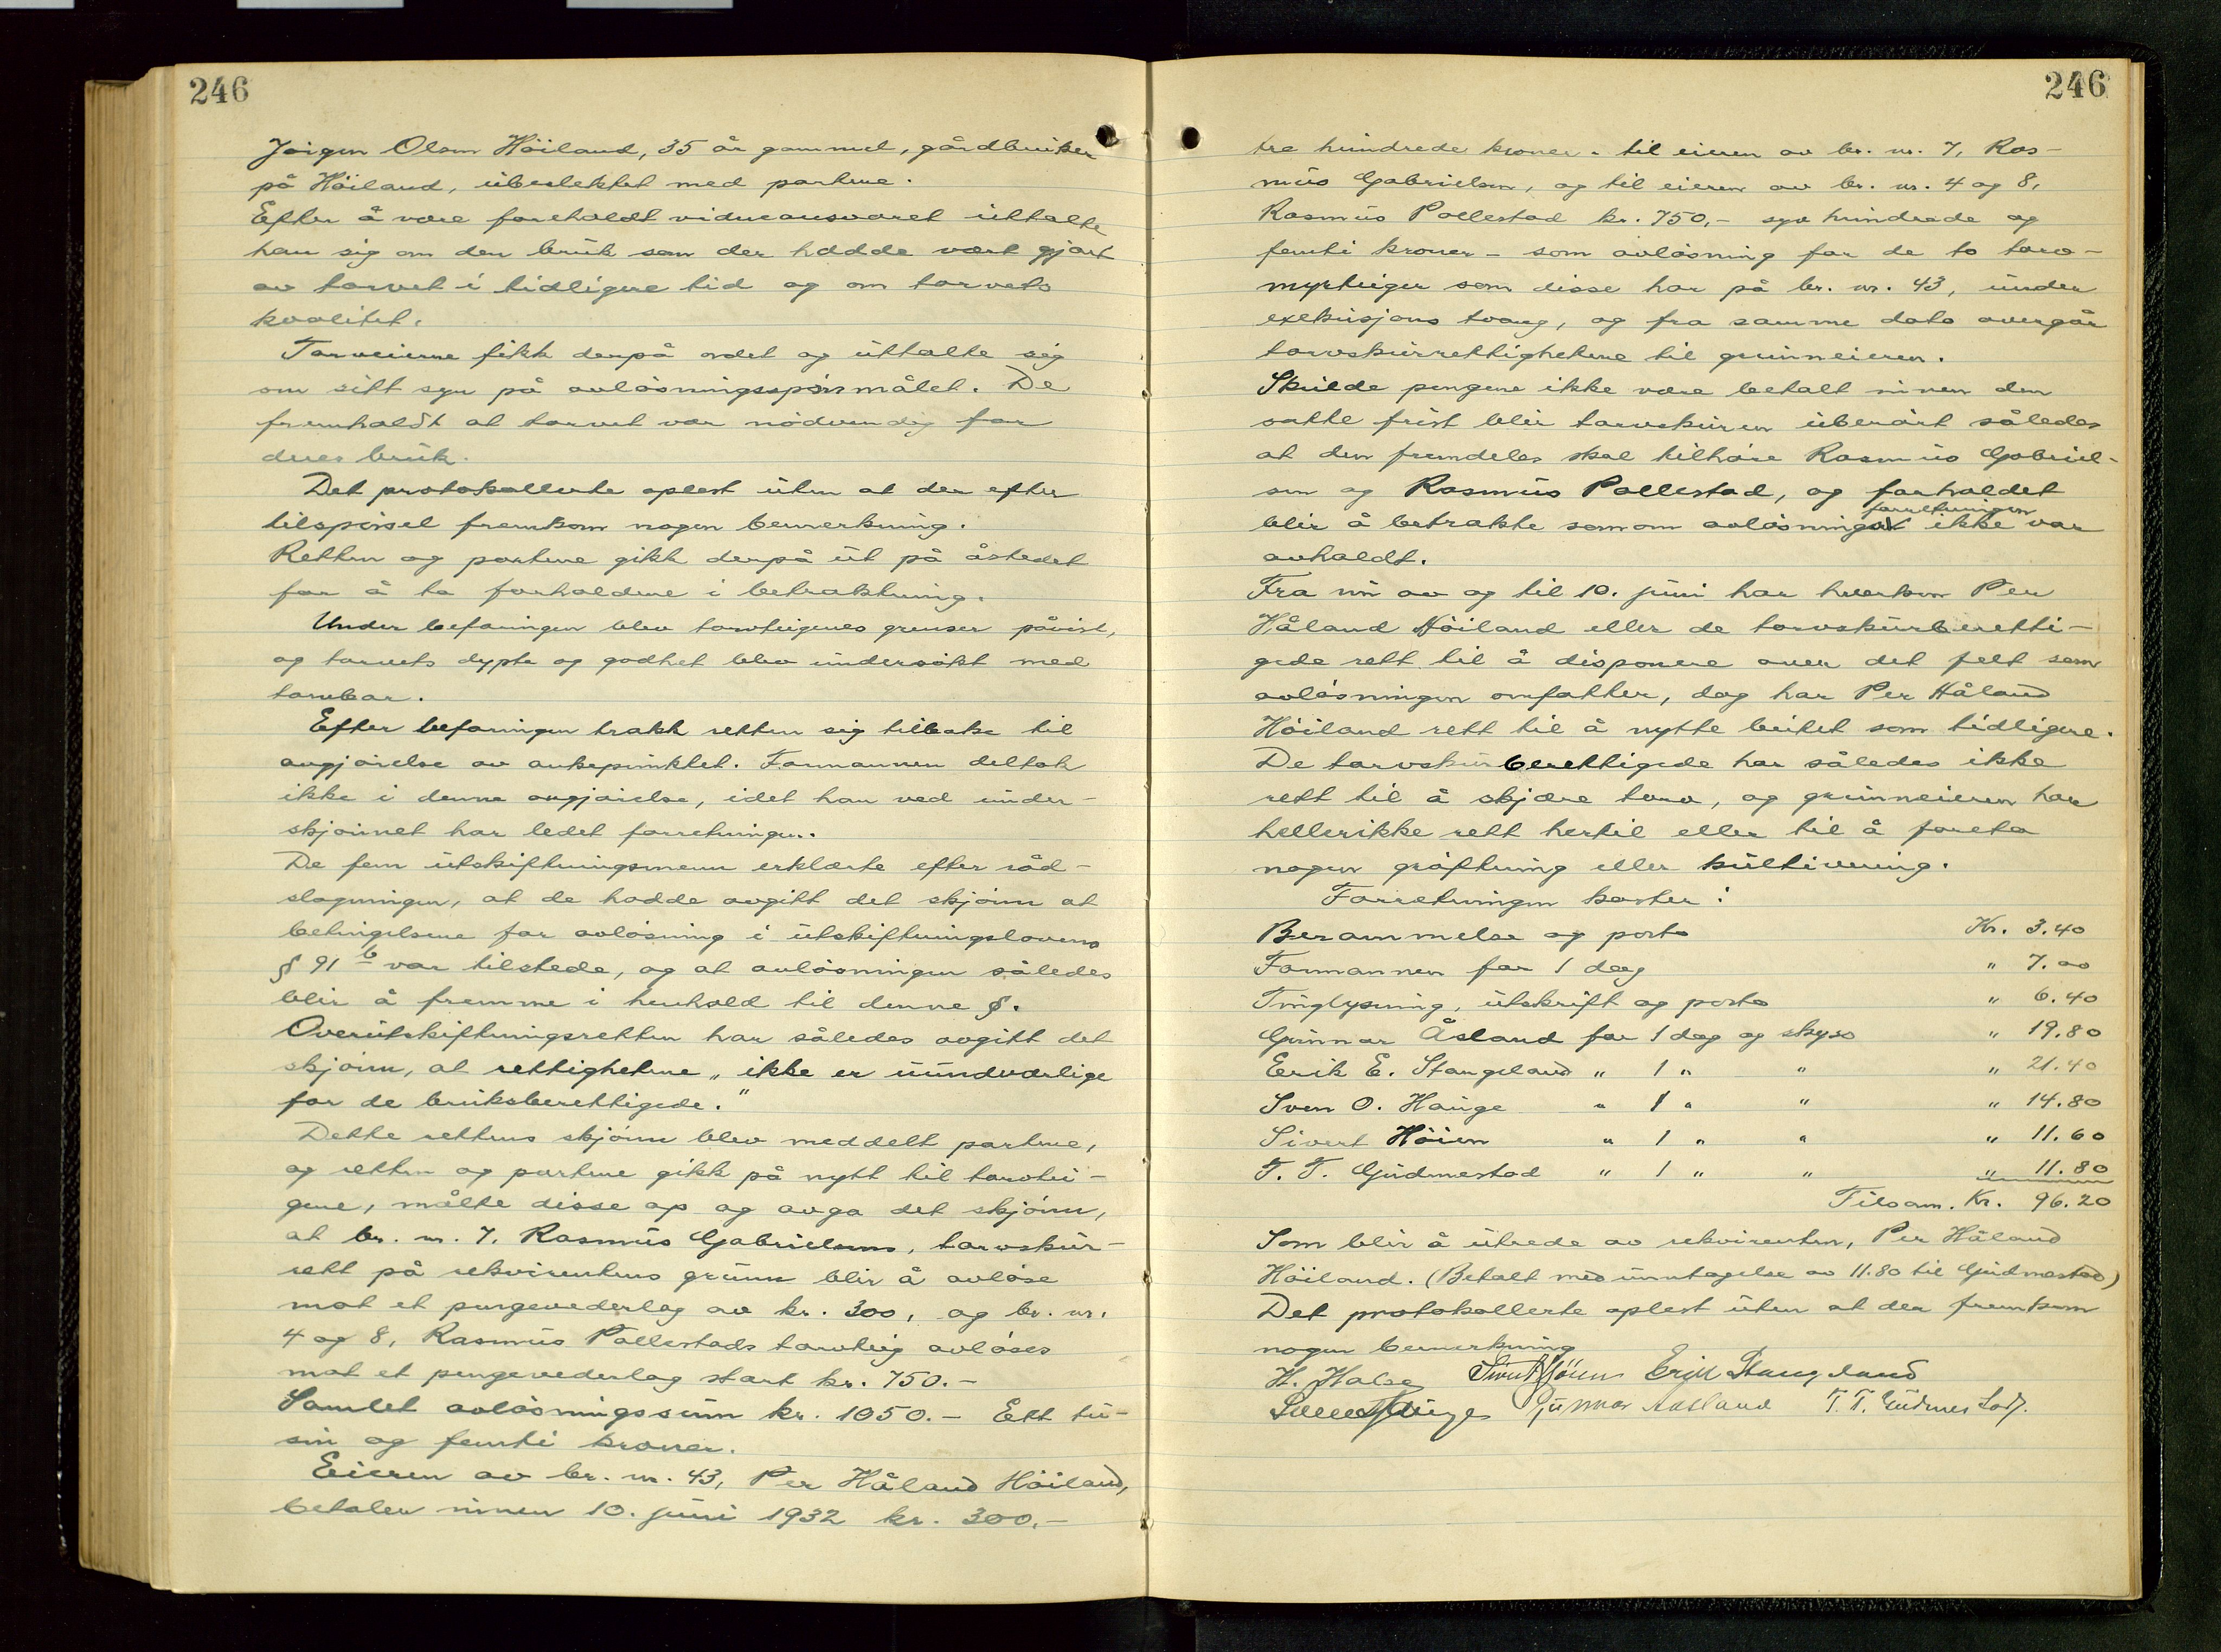 246
Jörgen Olsen Höiland, 35 år gammel, gårdbruker
på Höiland, ubeslektet med partene.
Efter å være foreholdt vidneansvaret uttalte
han sig om den bruk som der hadde vært gjort
av torvet i tidligere tid og om torvets
kvalitet.
Torveierne fikk derpå ordet og uttalte sig
om sitt syn på avlösningsspörsmålet. De
fremholdt at torvet var nödvendig for
deres bruk.
Det protokollerte oplest uten at der efter
tilspörsel fremkom nogen bemerkning.
Retten og partene gikk derpå ut på åstedet
for å ta forholdene i betraktning.
Under befaringen blev torvteigenes grenser påvist,
og torvets dypte og godhet blev undersökt med
torvbor.
Efter befaringen trakk retten sig tilbake til
avgjörelse av ankepunktet. Formannen deltok
ikke i denne avgjörelse, idet han ved under-
skjönnet har ledet forretningen.
De fem utskiftningsmenn erklærte efter råd-
slagningen, at de hadde avgitt det skjönn at
betingelsene for avlösning i utskiftningslovens
§ 91 b var tilstede, og at avlösningen således
blir å fremme i henhold til denne §.
Overutskiftningsretten har således avgitt det
skjönn, at rettighetene „ikke er uundværlige
for de bruksberettigede."
Dette rettens skjönn blev meddelt partene,
og retten og partene gikk på nytt til torvtei-
gene, målte disse op og avga det skjönn,
at br. nr. 7, Rasmus Gabrielsens, torvskur-
rett på rekvirentens grunn blir å avlöse
mot et pengevederlag av kr. 300, og br. nr.
4 og 8, Rasmus Pollestads torvteig avlöses
mot et pengevederlag stort kr. 750.-
Samlet avlösningssum kr. 1050.- Ett tu-
sin og femti kroner.
Eieren av br. nr. 43, Per Håland Höiland,
betaler innen 10. juni 1932 kr. 300.-
246
tre hundrede kroner - til eieren av br. nr. 7, Ras-
mus Gabrielsen, og til eieren av br. nr. 4 og 8,
Rasmus Pollestad kr. 750,- syv hundrede og
femti kroner - som avlösning for de to torv-
myrteiger som disse har på br. nr. 43, under
exekusjons tvang, og fra samme dato overgår
torvskurrettighetene til grunneieren.
Skulde pengene ikke være betalt innen den
satte frist blir torvskuren uberört således
at den fremdeles skal tilhöre Rasmus Gabriel-
sen og Rasmus Pollestad, og forholdet
forretningen
blir å betrakte som om avlösnings ikke var
avholdt.
Fra nu av og til 10. juni har hverken Per
Håland Höiland eller de torvskurberetti-
gede rett til å disponere over det felt som
avlösningen omfatter, dog har Per Håland
Höiland rett til å nytte beitet som tidligere.
De torvskurberettigede har således ikke
rett til å skjære torv, og grunneieren har
heller ikke rett hertil eller til å foreta
nogen gröftning eller kultivering.
Forretningen koster:
Berammelse og porto Kr. 3.40
Formannen for 1 dag " 7.00
Tinglysning, utskrift og porto " 6.40
Gunnar Åsland for 1 dag og skyss " 19.80
Eerik E. Stangeland " 1 " " " 21.40
Sven O. Hauge " 1 " " " 14.80
Sivert Höien " 1 " " " 11.60
T. T. Gudmestad " 1 " " " 11.80
Tilsam. Kr. 96.20
Som blir å utrede av rekvirenten, Per Håland
Höiland. (Betalt med unntagelse av 11.80 til Gudmestad)
Det protokollerte oplest uten at der fremkom
nogen bemerkning
H. Halse Sivert Höien Erik Stangeland
Sven Hauge Gunnar Aasland T. T. Gudmestad.